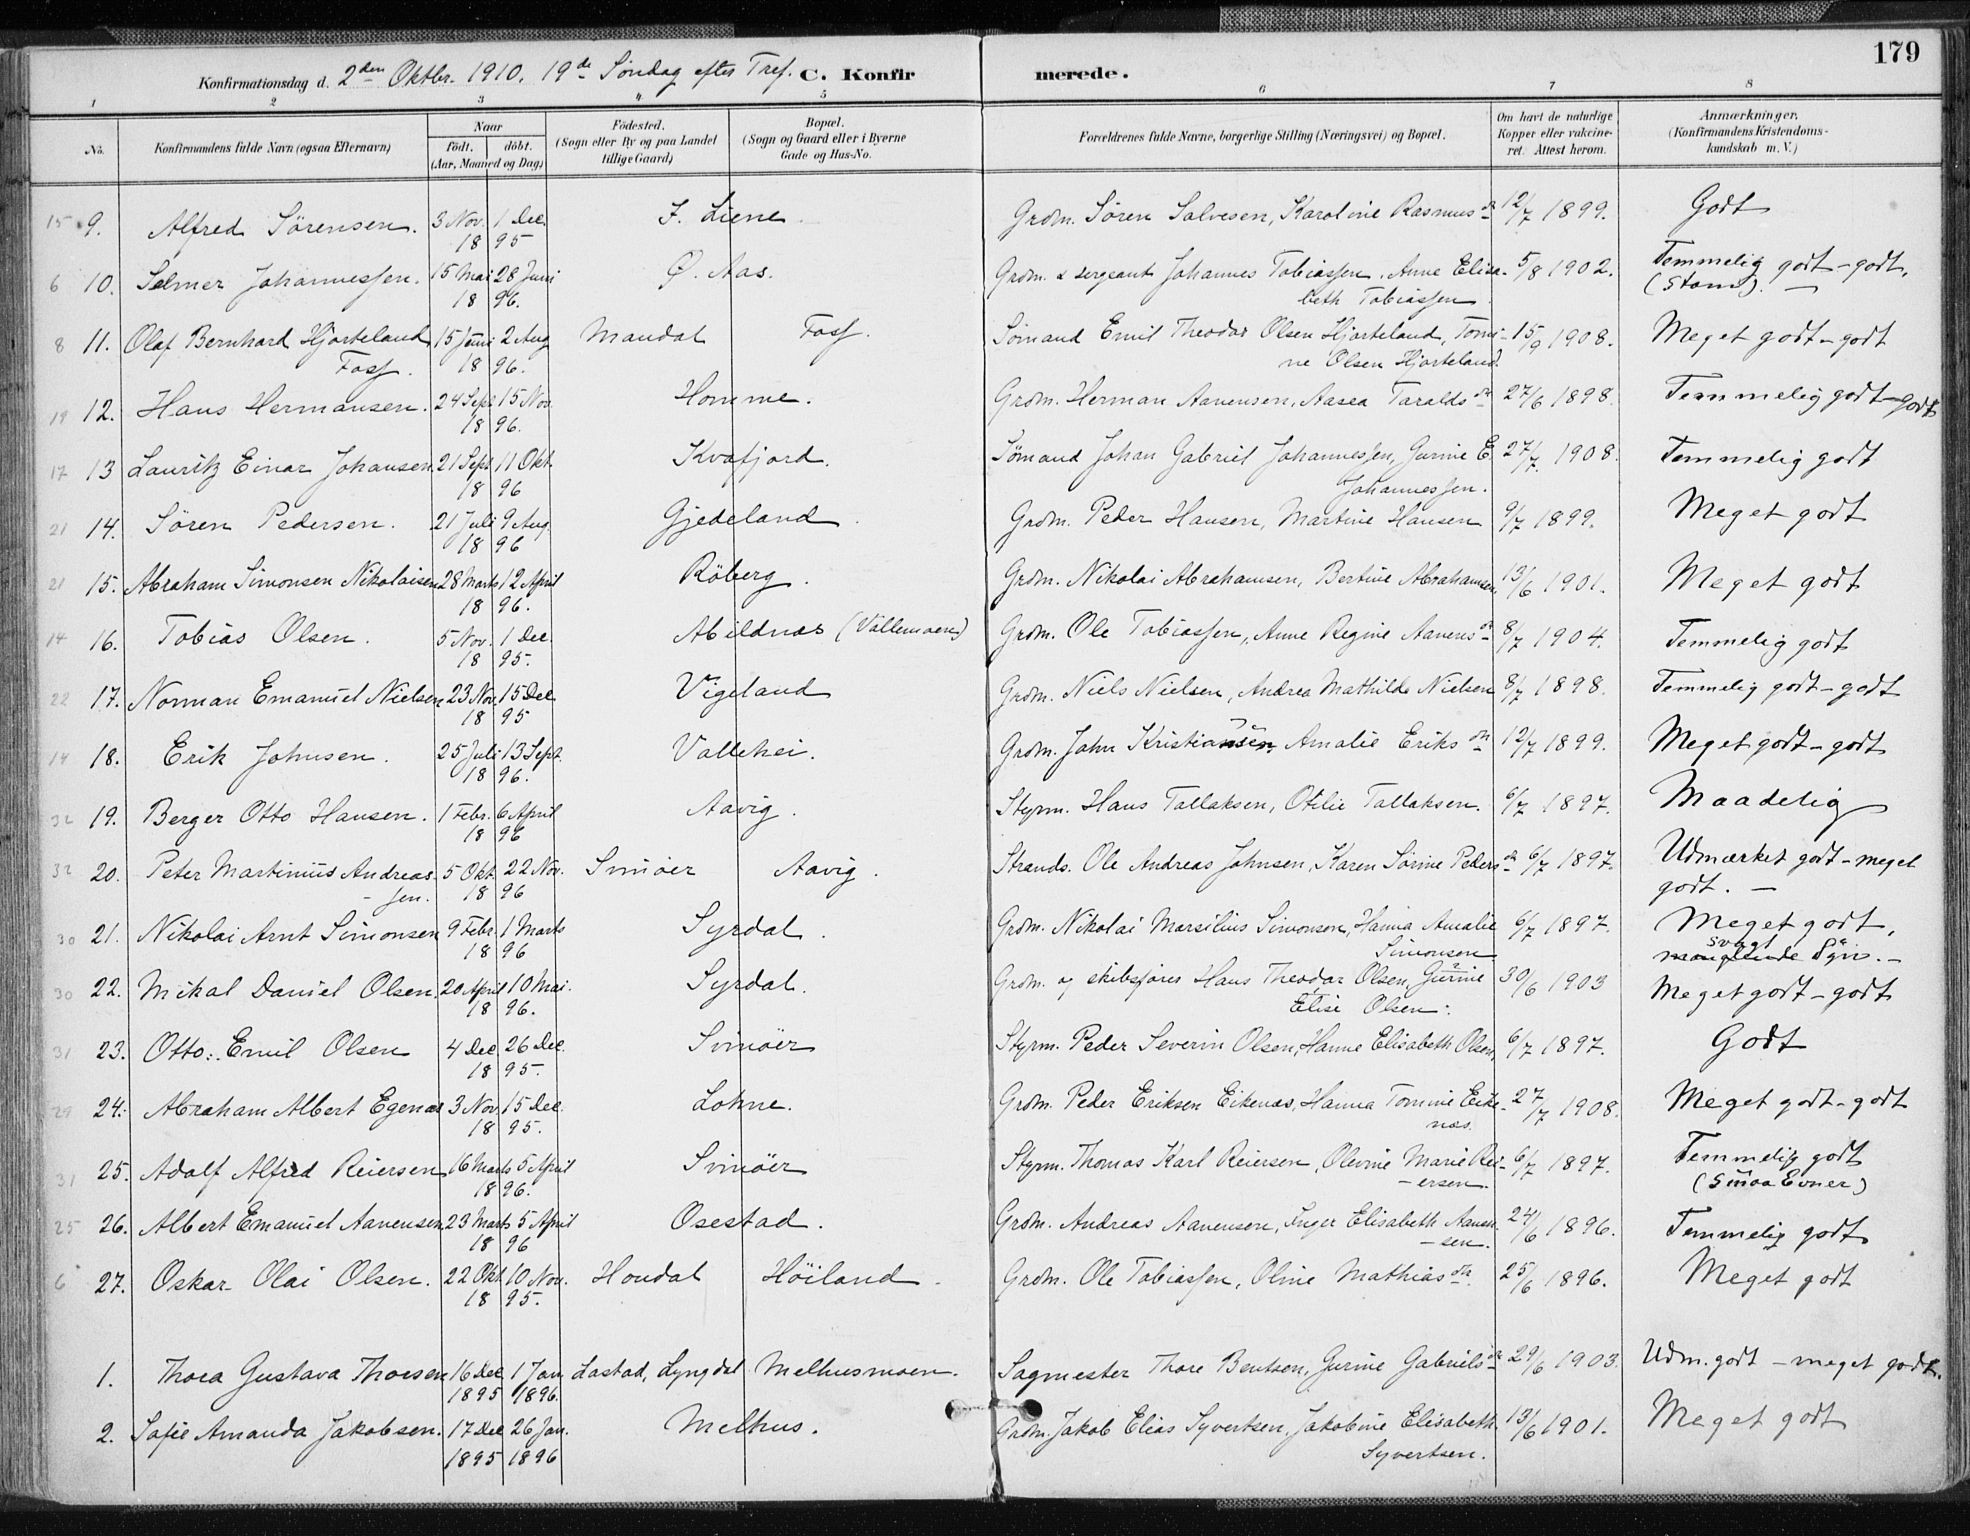 179
Konfirmationsdag d. 2den Oktbr. 1910. 19de Søndag efter Tref. C. Konfirmerede.
1 2 3 4 5 6 7 8
No. Konfirmandens fulde Navn (ogsaa Efternavn) Naar født. døbt. (Aar, Maaned og Dag) Fødested. (Sogn eller By og paa Landet tillige Gaard) Bopæl. (Sogn og Gaard eller i Byerne Gade og Hus-No. Forældrenes fulde Navne, borgerlige Stilling (Næringsvei) og Bopæl. Om havt de naturlige Kopper eller vakcineret. Attest herom. Anmærkninger. (Konfirmandens Kristendomskundskab m. V.)
15 9. Alfred Sörensen. 3 Nov. 1 Dec. F. Liene. Grdm. Sören Salvesen, Karoline Rasmusdr 12/7 1899. Godt
18 95
6 10. Selmer Johannessen. 15 Mai 28 Juni Ø. Aas. Grdm. & sergeant Johannes Tobiassen, Anne Elisa- 5/8 1902. Temmelig godt-godt,
18 96. beth Tobiassen. (Stam). —
8 11. Olaf Bernhard Hjorteland 15 Juni 2 Aug Mandal Foss. Sömand Emil Theodor Olsen Hjorteland, Tomi- 15/9 1908. Meget godt-godt
Foss. 18 96. ne Olsen Hjorteland.
19 12. Hans Hermansen. 24 Sept 15 Nov. Homme. Grdm. Herman Aanensen, Aasea Taraldsdr 27/6 1898. Temmelig godt-godt
18 96.
17 13 Lauritz Einar Johansen 21 Sept 11 Okt. Kvafjord. Sömand Johan Gabriel Johannessen, Gurine E. 27/7. 1908. Temmelig godt
18 96 Johannessen.
21 14. Sören Pedersen. 21 Juli 9 Aug. Gjedeland. Grdm. Peder Hansen, Martine Hansen 9/7 1899. Meget godt
18 96
21 15. Abraham Simonsen Nikolaisen 28 Marts 12 April Röberg. Grdm. Nikolai Abrahamsen, Bertine Abrahamsen, 13/6 1901. Meget godt
18 96.
14 16. Tobias Olsen. 5 Nov. 1 Dec. Abildnæs (Vallemoen) Grdm. Ole Tobiassen, Anne Regine Aanensdr 8/7 1904. Temmelig godt
18 95.
22 17. Norman Emanuel Nielsen 23 Nov. 15 Dec Vigeland Grdm. Niels Nielsen, Andrea Mathilde Nielsen 8/7 1898. Temmelig godt-godt
18 95
14 18. Erik Johnsen. 25 Juli 13 Sept. Vallehei. Grdm. John Kristiansen, Amalie Eriksdtr 12/7 1899. Meget godt-godt
18 96.
32 19. Berger Otto Hansen. 1 Febr. 6 April Aavig. Styrm. Hans Tallaksen, Otilie Tallaksen. 6/7 1897. Maadelig
18 96
32 20. Peter Martinius Andreas- 5 Okt. 22 Nov. Svinöer Aavig. Strands. Ole Andreas Johnsen, Karen Sörine Pedersdr 6/7 1897. Udmærket godt-meget
sen. 18 96 godt. —
30 21. Nikolai Arnt Simonsen 9 Febr. 1 Marts Syrdal. Grdm. Nikolai Marsilius Simonsen, Hanna Amalie 6/7 1897. Meget godt,
18 96 Simonsen manglende svagt Syn. —
30 22. Mikal Daniel Olsen. 20 April 10 Mai. Syrdal. Grdm. og skibsförer Hans Theodor Olsen, Gurine 30/6 1903 Meget godt-godt
18 96. Elise Olsen.
31 23. Otto Emil Olsen 4 Dec. 26 Dec. Svinöer Styrm. Peder Severin Olsen, Hanne Elisabeth Olsen, 6/7 1897. Godt
18 95.
29 24. Abraham Albert Egenæs 3 Nov. 15 Dec. Lohne. Grdm. Peder Eriksen Eikenæs, Hanna Tomine Eike- 27/7 1908. Meget godt-godt
18 95. næs.
31 25. Adolf Alfred Reiersen 16 Marts 5 April Svinöer Styrm. Thomas Karl Reiersen, Olevine Marie Rei- 6/7 1897. Temmelig godt
18 96. ersen. (Smaa Evner)
25 26. Albert Emanuel Aanensen 23 Marts 5 April Osestad. Grdm. Andreas Aanensen, Inger Elisabeth Aanen- 24/6 1896. Temmelig godt
18 96 sen.
6 27. Oskar Olai Olsen. 22 Okt. 10 Nov. Houdal Höiland. Grdm. Ole Tobiassen, Oline Mathiasdtr. 25/6 1896. Meget godt
18 95.
1. Thora Gustava Thorsen 16 Dec 1 Jan Lastad, Lyngdal Melhusmoen. Sagmester Thore Bentsen, Gurine Gabrielsdr 29/6 1903. Udm. godt - meget godt.
1895 1896.
2. Sofie Amanda Jakobsen. 17 Dec 26 Jan. Melhus. Grdm. Jakob Elias Syvertsen, Jakobine Elisabeth 13/6 1901. Meget godt
1895 1896 Syvertsen.